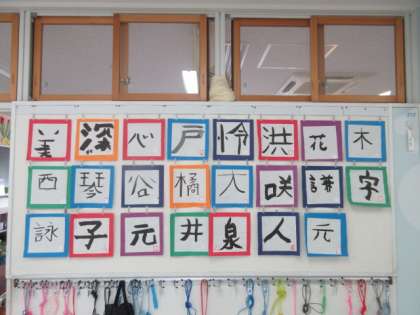 美 深 心 戸 怜 洪 花 木
西 琴 谷 橘 大 咲 謙 宇
詠 子 元 井 泉 人 元